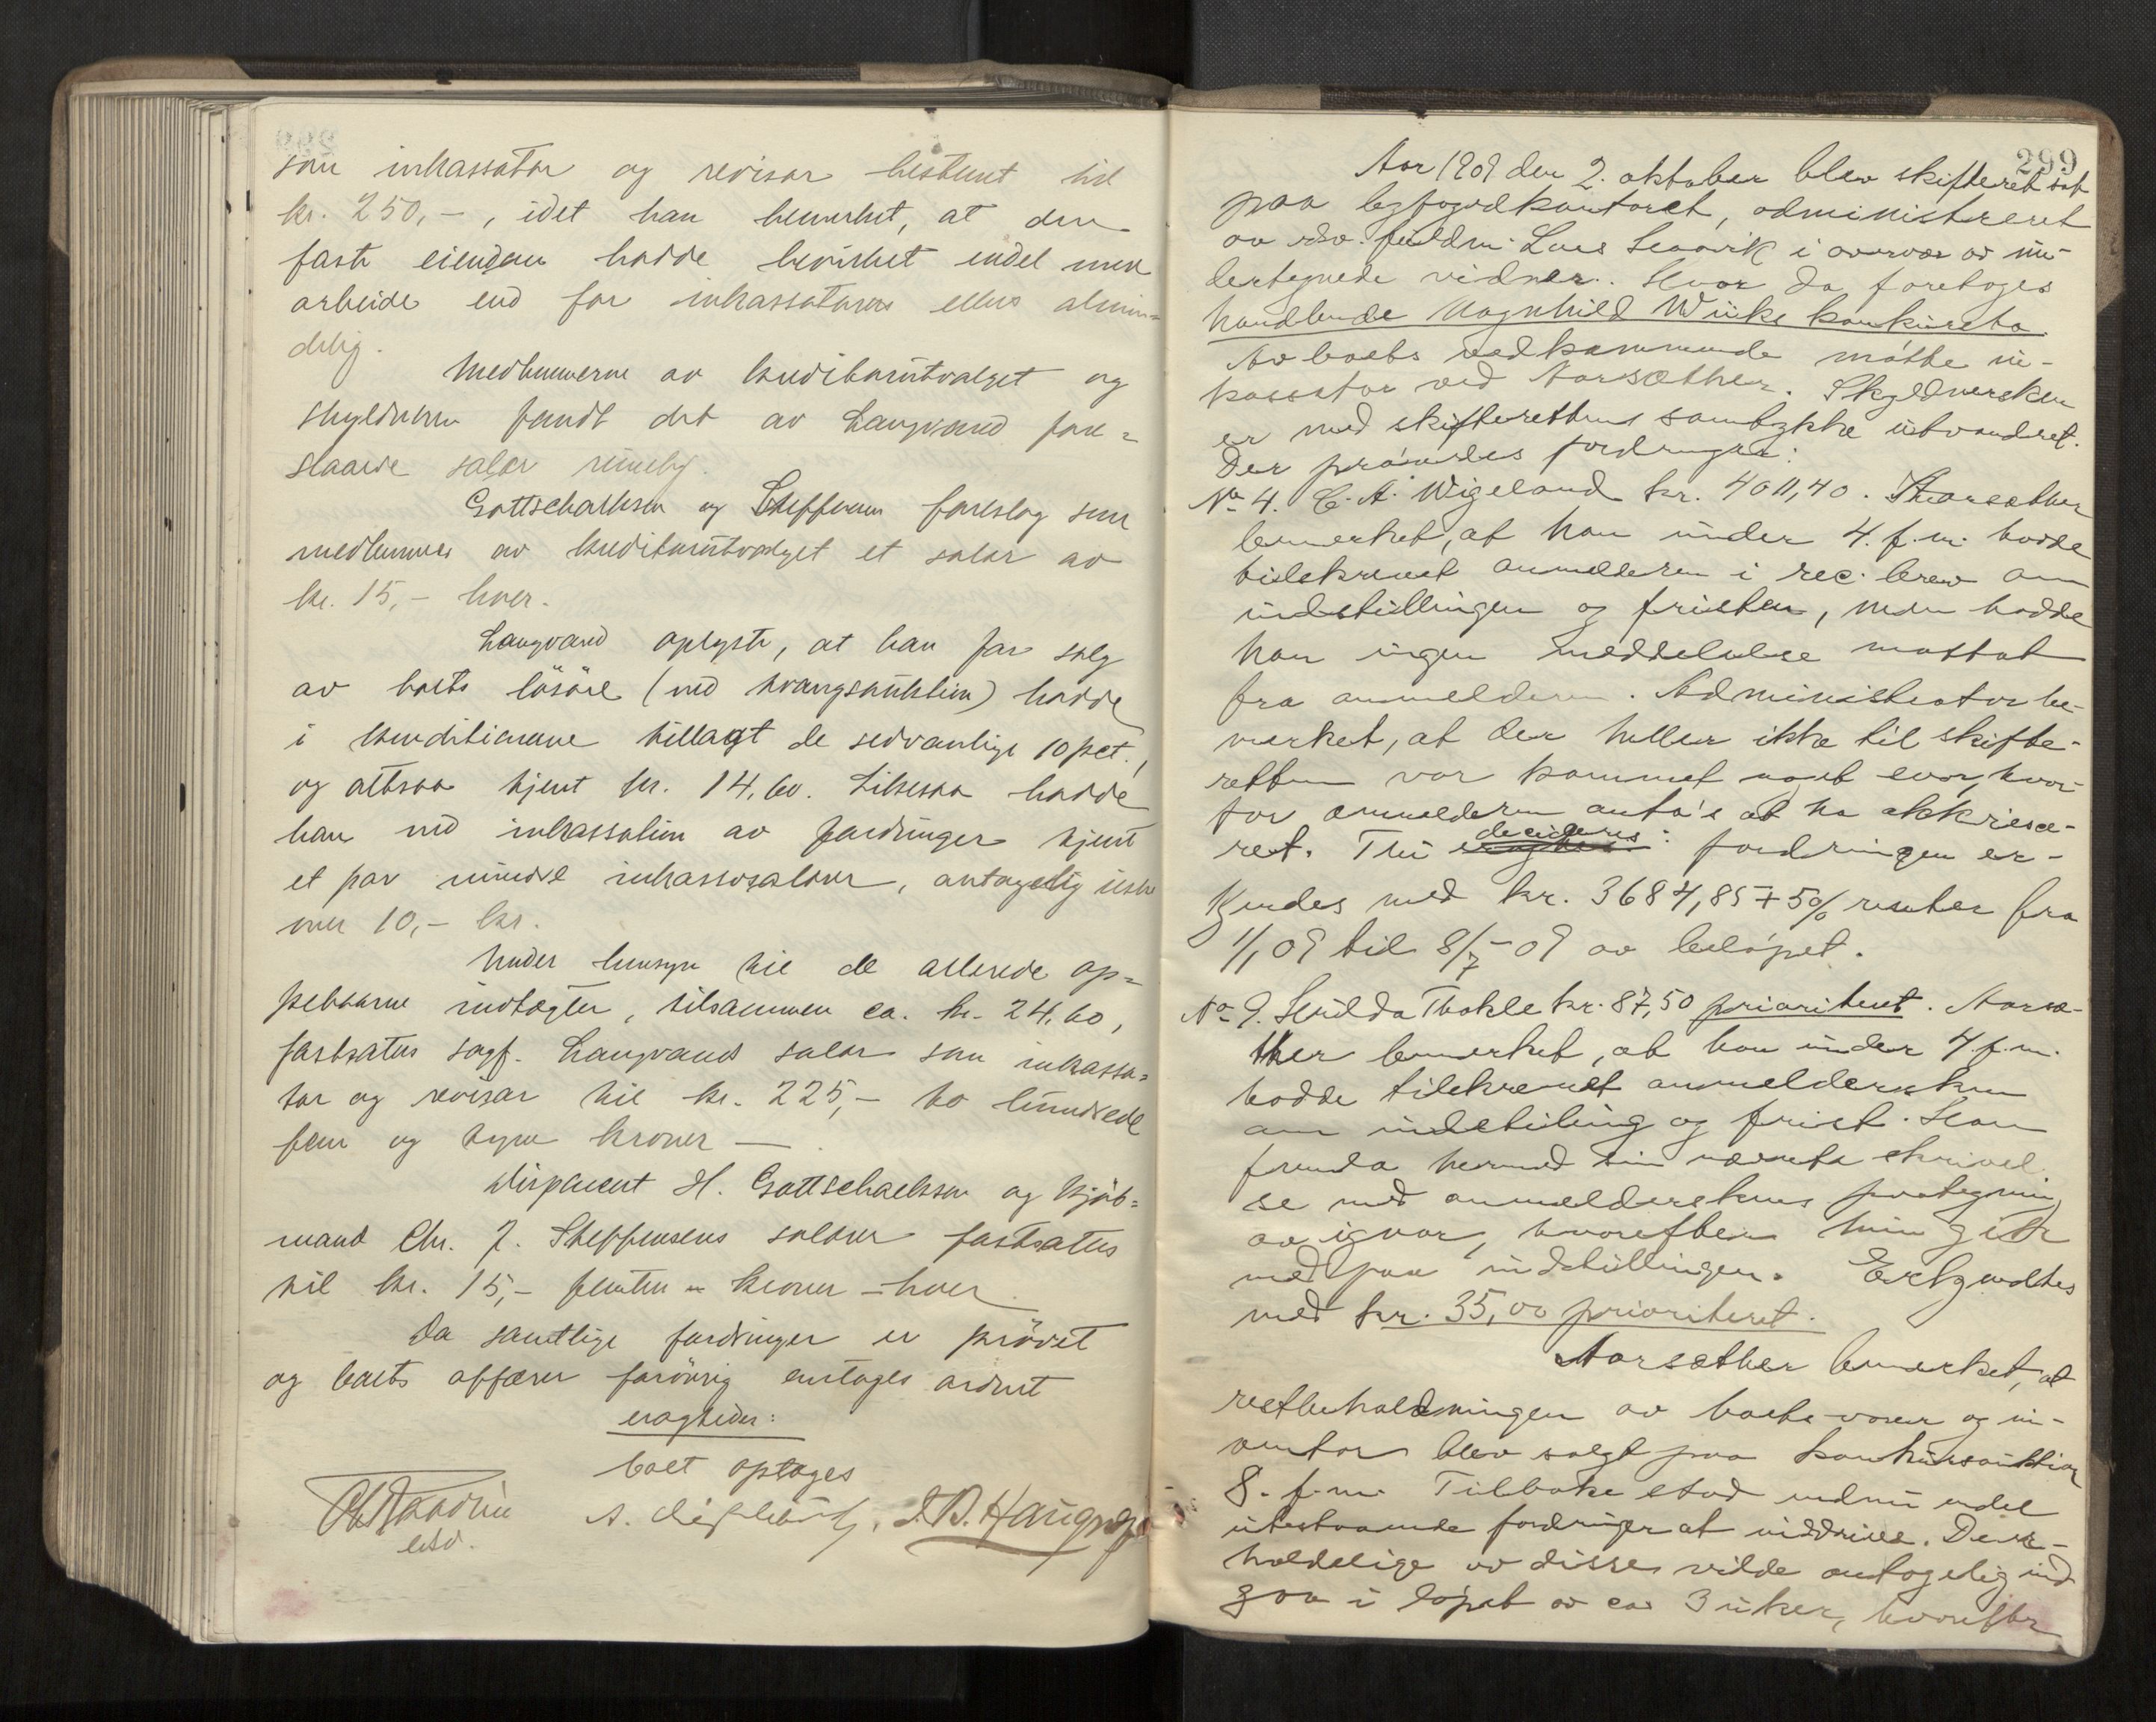 som inkassator og revisor bestemt til
kr. 250,-, idet han bemerket, at den
faste eiendom hadde bevirket endel mer
arbeide end for inkassatoren ellers almin=
delig.
Medlemmerne av kreditorutvalget og
skyldneren fandt det av Langvand fore=
slaaede salær rimelig.
Gottschalksen og Steffensen foreslog som
medlemmer av kreditorutvalget et salær av
kr. 15,- hver.
Langvand oplyste, at han for salg
av boets lösöre (ved tvangsauktion) hadde
i konditionerne tillagt de sedvanlige 10 pct.,
og altsaa tjent kr. 14,60. Likesaa hadde
han ved inkassation av fordringer tjent
et par mindre inkassosalærer, antagelig ikke
over 10,- kr.
Under hensyn til de allerede op=
pebaarne indtægter, tilsammen ca. kr. 24,60,
fastsattes sagf. Langvands salær som inkassa=
tor og revisor til kr. 225,- to hundrede
fem og tyve kroner —
Disponent H. Gottschalksen og kjöb=
mand Chr. J. Steffensens salærer fastsattes
til kr. 15,- femten - kroner - hver.
Da samtlige fordringer er prövet
og boets affærer forövrig antages ordnet
eragtedes:
boet optages
cst.
299
Aar 1909 den 2. oktober blev skifteret sat
paa byfogedkontoret, administreret
av edsv. fuldm. Lars Leavik i overvær av un-
dertegnede vidner. Hvor da foretoges
handlende Ragnhild Wiiks konkursbo.
Av boets vedkommende møtte in-
kassator ved Aarsæther. Skyldnersken
er med skifterettens samtykke utvandret.
Der prøvedes fordringer:
No 4. C. A. Wigeland kr. 4011,40. Aarsæther
bemerket, at han under 4. f.m. hadde
tilskrevet anmelderen i rec. brev om
indstillingen og fristen, men hadde
han ingen meddelelse mottat
fra anmelderen. Administrator be-
merket, at der heller ikke til skifte-
retten var kommet noget svar, hvor-
for anmelderen antas at ha akkviesce-
ret. Thi decideres: fordringen er-
kjendes med kr. 3684,85 + 5% renter fra
1/1 09 til 8/7-09 av beløpet.
No 9. Hulda Thokle kr. 87,50 prioritert. Aarsæ-
ther bemerket, at han under 4. f.m.
hadde tilskrevet anmeldersken
om indstilling og frist. Han
fremla hermed sin nævnte skrivel
se med anmelderskens paategning
av igaar, hvorefter hun gik
med paa indstillingen. Erkjendtes
med kr. 35,00 prioritert.
Aarsæther bemerket, at
restbeholdningen av boets varer og in-
ventar blev solgt paa konkursauktion
8. f.m. Tilbake stod endnu endel
utestaaende fordringer at inddrive. De er-
holdelige av disse vilde antagelig ind
gaa i løpet av ca. 3 uker, hvorefter